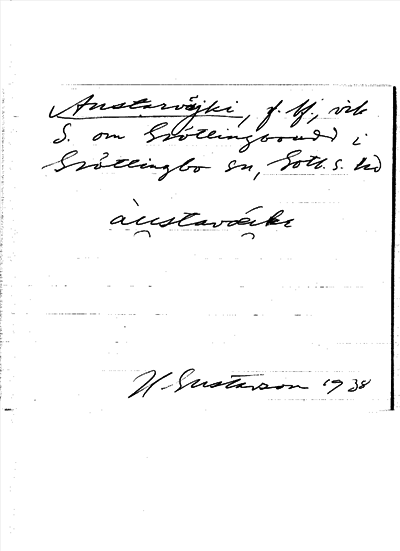 Austaväjki, f. bf., vik
S. om Grötlingboudd i
Grötlingbo sn, Gotl. s. hd
àustavǽike
H. Gustavson 1938